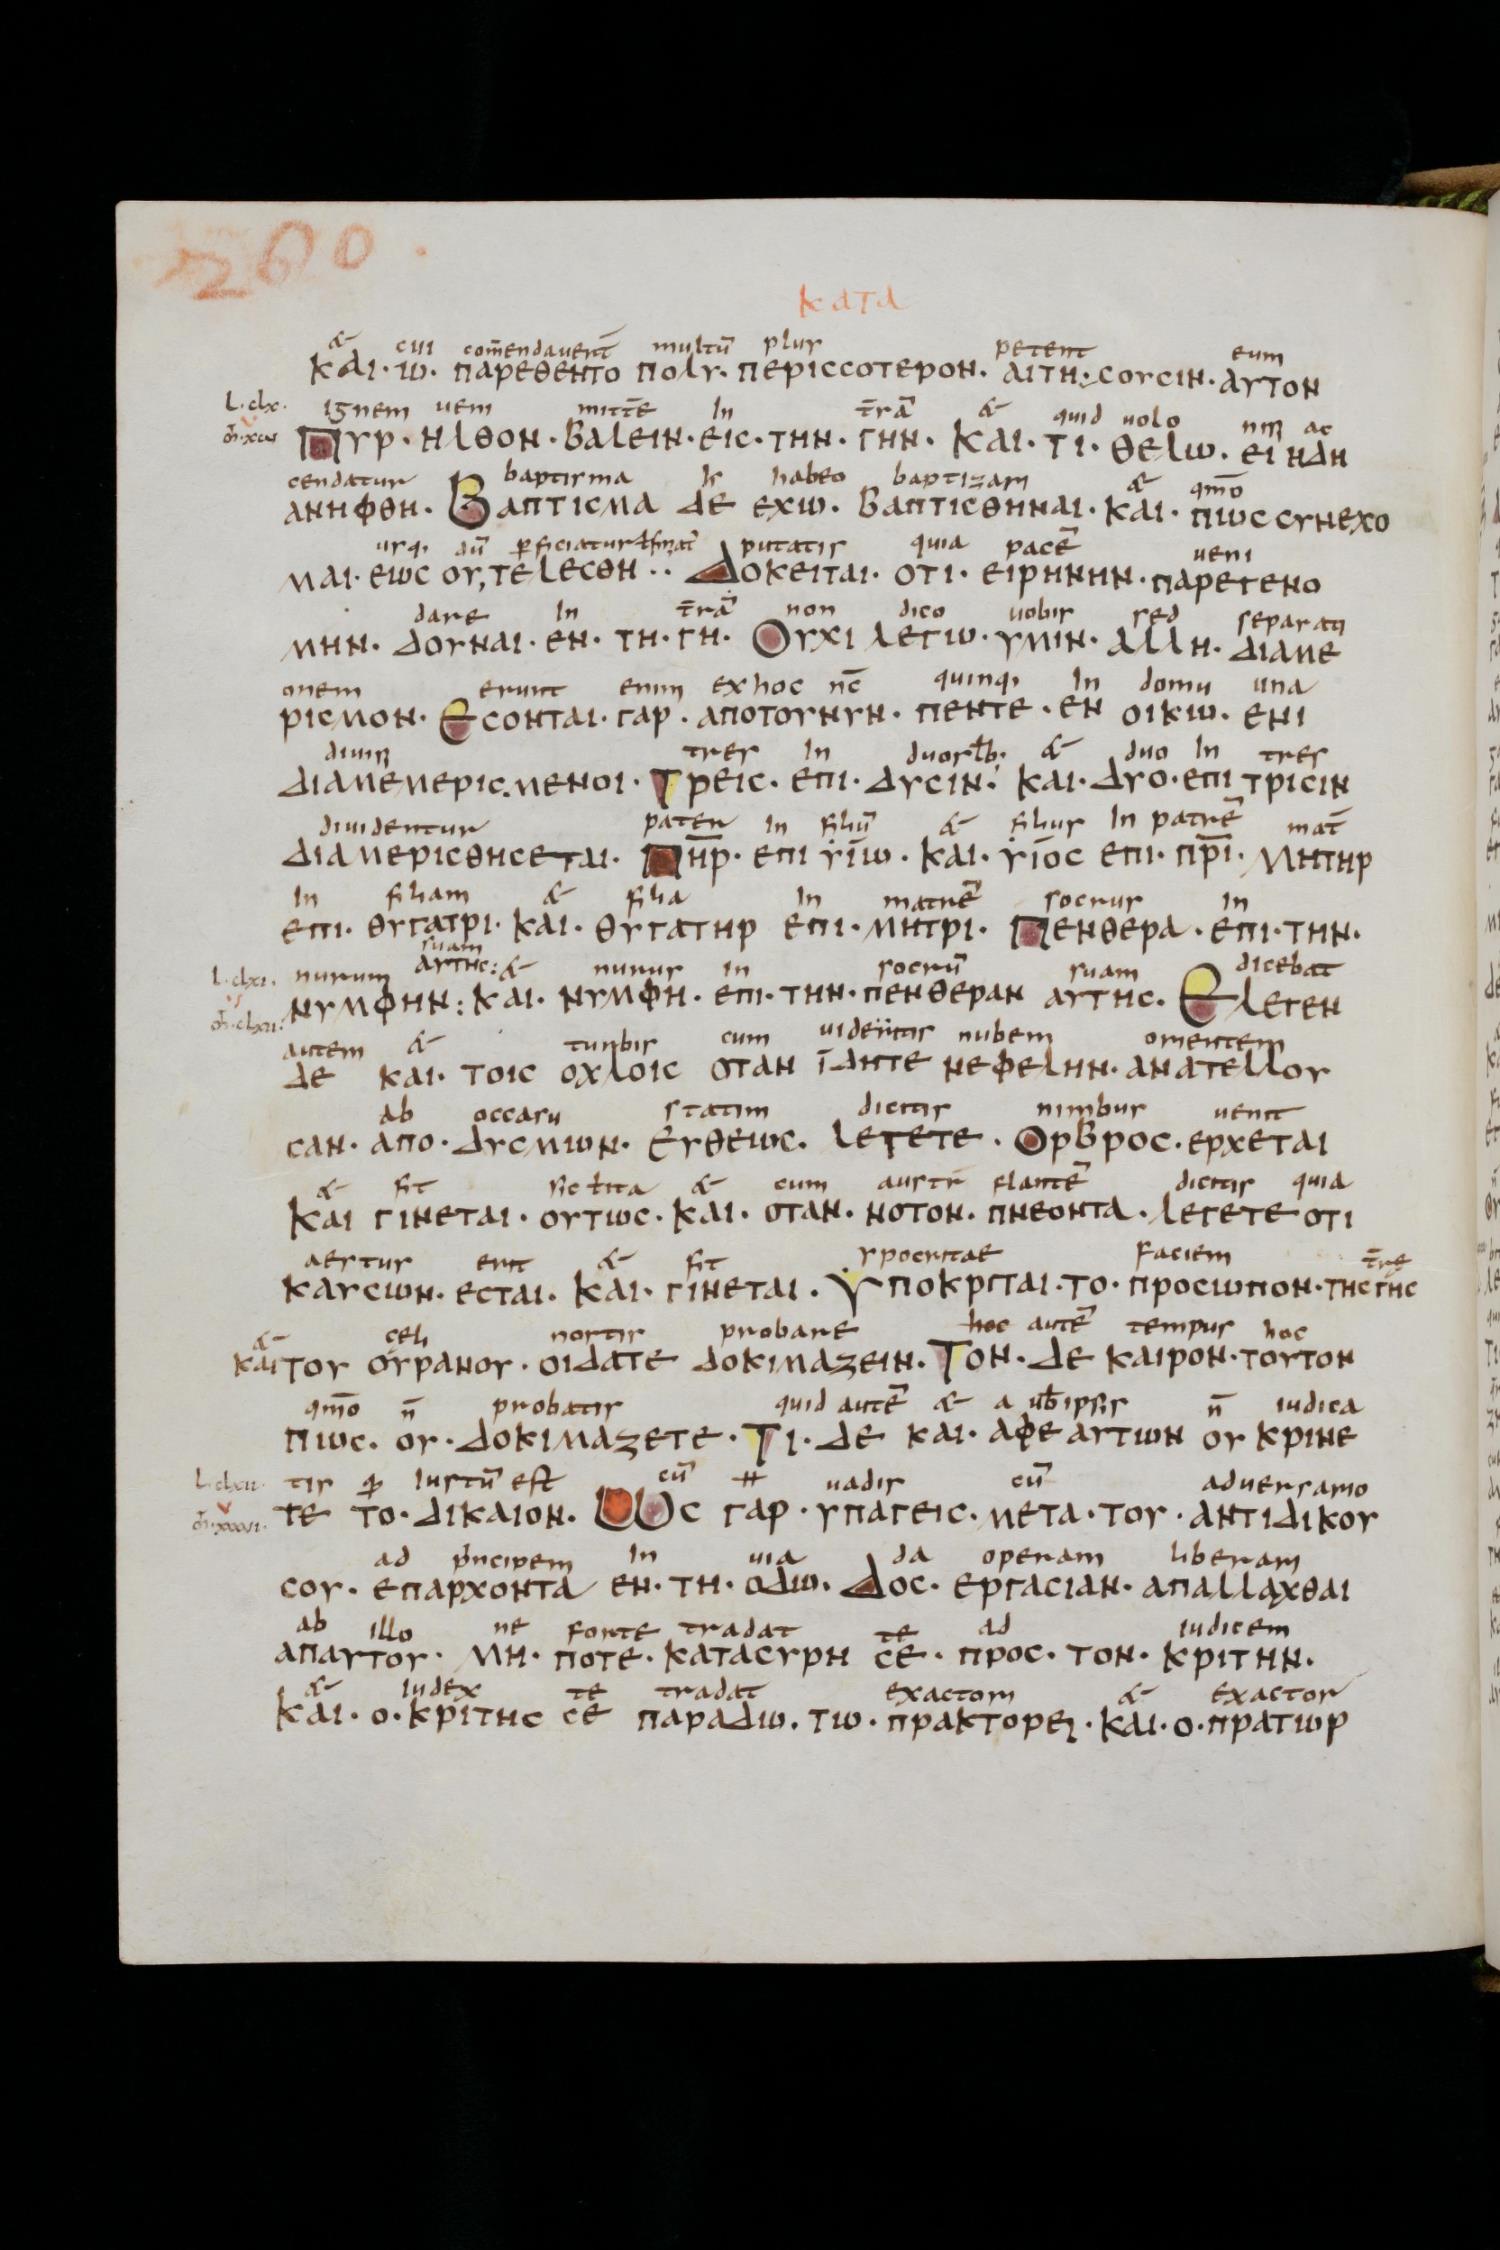 260.
κατα
& cui com̄endauer̄t multū plur petent eum
και· ω· παρεθεητο πολυ· περισσοτερον· αιτηςουσιν· αυτον
L·clx· ignem uem mittē In t̄rā & quid uolo ac
πυρ· ηλθον· βαλειν· εις· την· γην· και· τι· θελω· ει ηδη
cendatur baptisma habeo baptizam & qm̄o
ανηφθη· Βαπτισμα δε εχω· βαπτισθηναι· και· πως συνεχο
usq; putatis quia pacē ueni
μαι· εως ου, τελεσθη·· Δοκειται· οτι· ειρηνην· παρεγενο
dare In t̄rā non dico uobis sed separati
μην· δουναι· εν· τη· γη· Ουχι λεγω· υμιν· αλλη· διαμε
onem erunt enim ex hoc nc̄ quinq; In domu una
ρισμον· Εσονται· γαρ· αποτουνυν· πεντε· εν οικω· ενι
diuisi tres In & duo In tres
διαμεμερισμενοι· Τρεις· επι· δυσιν· και· δυο· επι τρισιν
diuidentur pater In filiū & filius In patrē mat̄
διαμερισθησεται· π̄η̄ρ· επι υῑω· και· υῑος επι· π̄ρ̄ῑ· μητηρ
In filiam & filia In matrē socrus In
επι· θυγατρι· και· θυγατηρ επι· μητρι· πενθερα· επι· την·
suam
αυτης:
L·clxi· nurum & nurus in socrū suam dicebat
νυμφην: και· νυμφη· επι· την· πενθεραν αυτης· Ελεγεν
autem & turbis cum uideritis nubem orientem
δε και· τοις οχλοις οταν ϊδητε νεφελην· ανατελλου
ab occasu statim dicitis nimbus uenit
σαν· απο· δυσμων· Ευθεως· λεγετε· Ορβρος· ερχεται
& fit sic ł ita & cum austr̄ flantē dicitis quia
και γινεται· ουτως· και· οταν· νοτον· πνεοντα· λεγετε οτι
aestus erit & fit ypocritae faciem t̄re
καυσων· εσται· και· γινεται· Υποκριται· το· προσωπον· της γης
& celi nostis probare hoc autē tempus hoc
και του ουρανου· οιδατε δοκιμαζειν· Τον· δε καιρον· τουτον
qm̄o n̄ probatis quid autē & a ub̄ ipsis n̄ iudica
πως· ου· δοκιμαζετε· Τι· δε και· αφεαυτων ου κρινε
L·clxii· tis iustū est cū uadis cū aduersario
τε το· δικαιον· Ως γαρ· υπαγεις· μετα· του· αντιδικου
ad principem In uia da operam liberam
σου· επαρχοντα εν· τη· οδω· Δος· εργασιαν· απαλλαχθαι
ab illo ne forte tradat te ad iudicem
απαυτου· μη· ποτε· κατασυρη σε· προς· τον· κριτην·
& iudex te tradat exactori & exactor
και· ο· κριτης σε παραδω· τω· πρακτορει· και· ο· πρατωρ